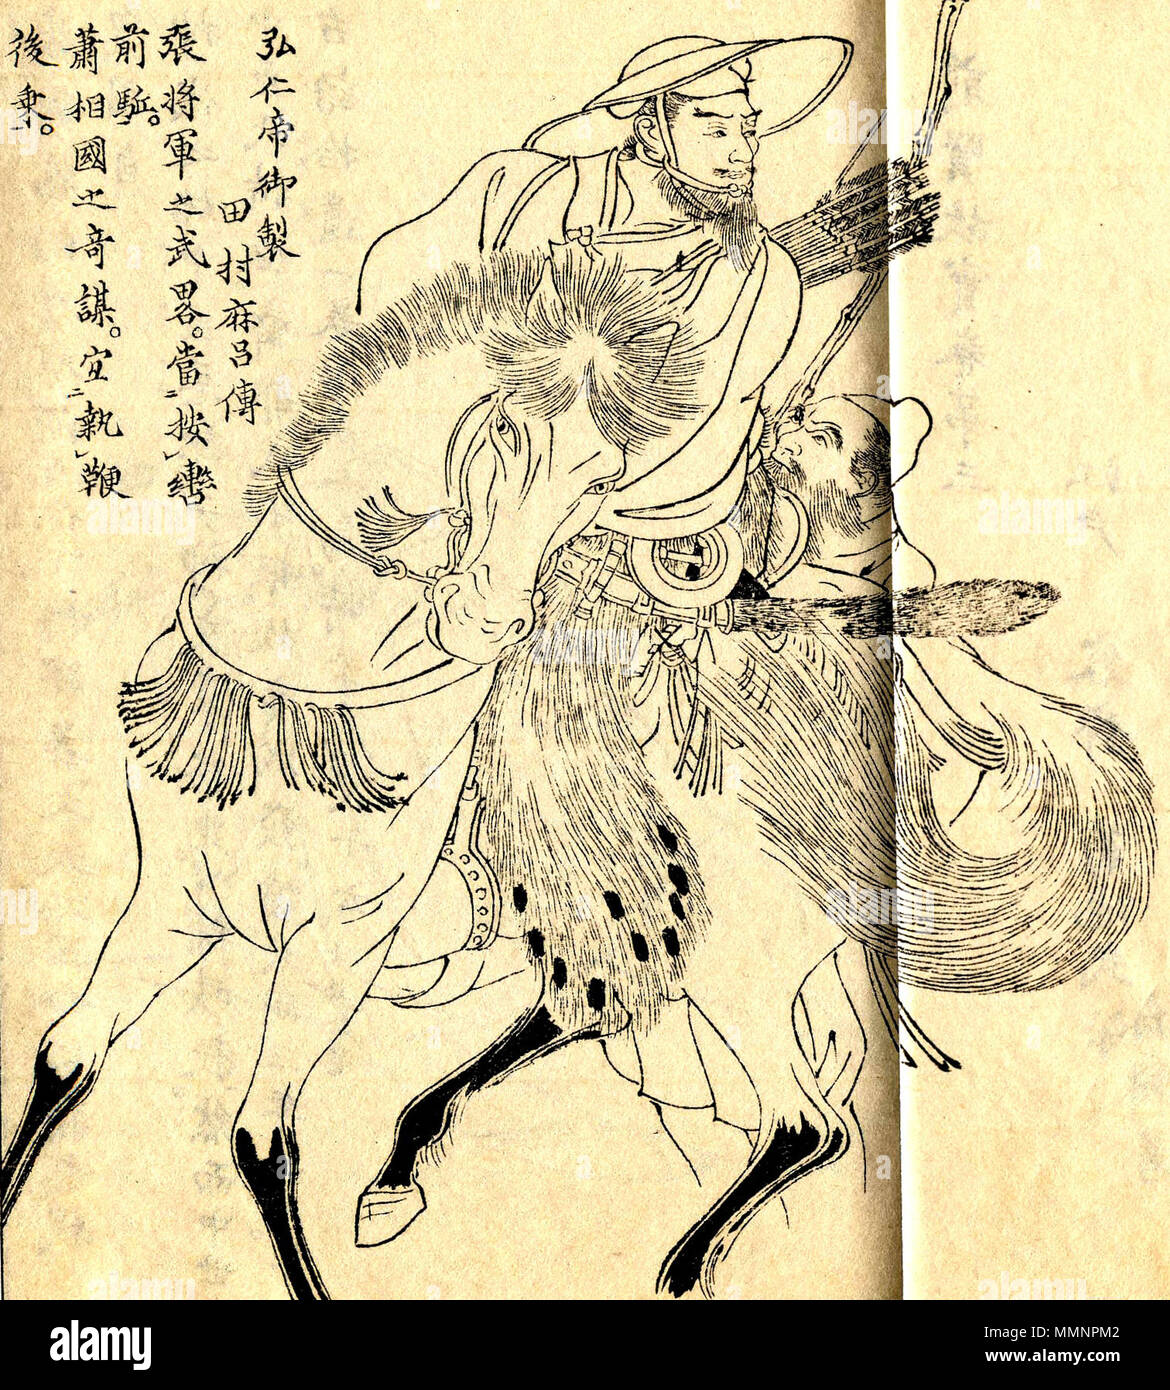 弘仁帝御製
田村麻呂傳
張将軍之武畧。當二按」轡
前駈。
蕭相國之竒謀。宜二執」鞭
後乗。
alamy
Image ID: MMNPM2
www.alamy.com